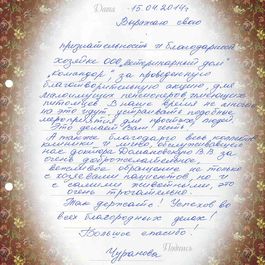 Дата -15.04.2014г.
Выражаю свою
признательность и благодарность
хозяйке ООО „Ветеринарный дом"
„Командор", за проведенную
благотворительную акцию, для
малоимущих пенсионеров имеющих
питомцев. В наше время не многие
на это идут, устраивать подобные
мероприятия для простых людей.
Это делает Вам честь.
А также благодарю весь коллектив
клиники и лично, обслуживавшего
нас доктора В.В. за
очень доброжелательное,
вежливое обращение не только
с хозяевами пациентов, но и
с самими животными, это
очень трогательно.
Так держать! Успехов во
всех благородных делах!
Большое спасибо!
Подпись
Чуранова